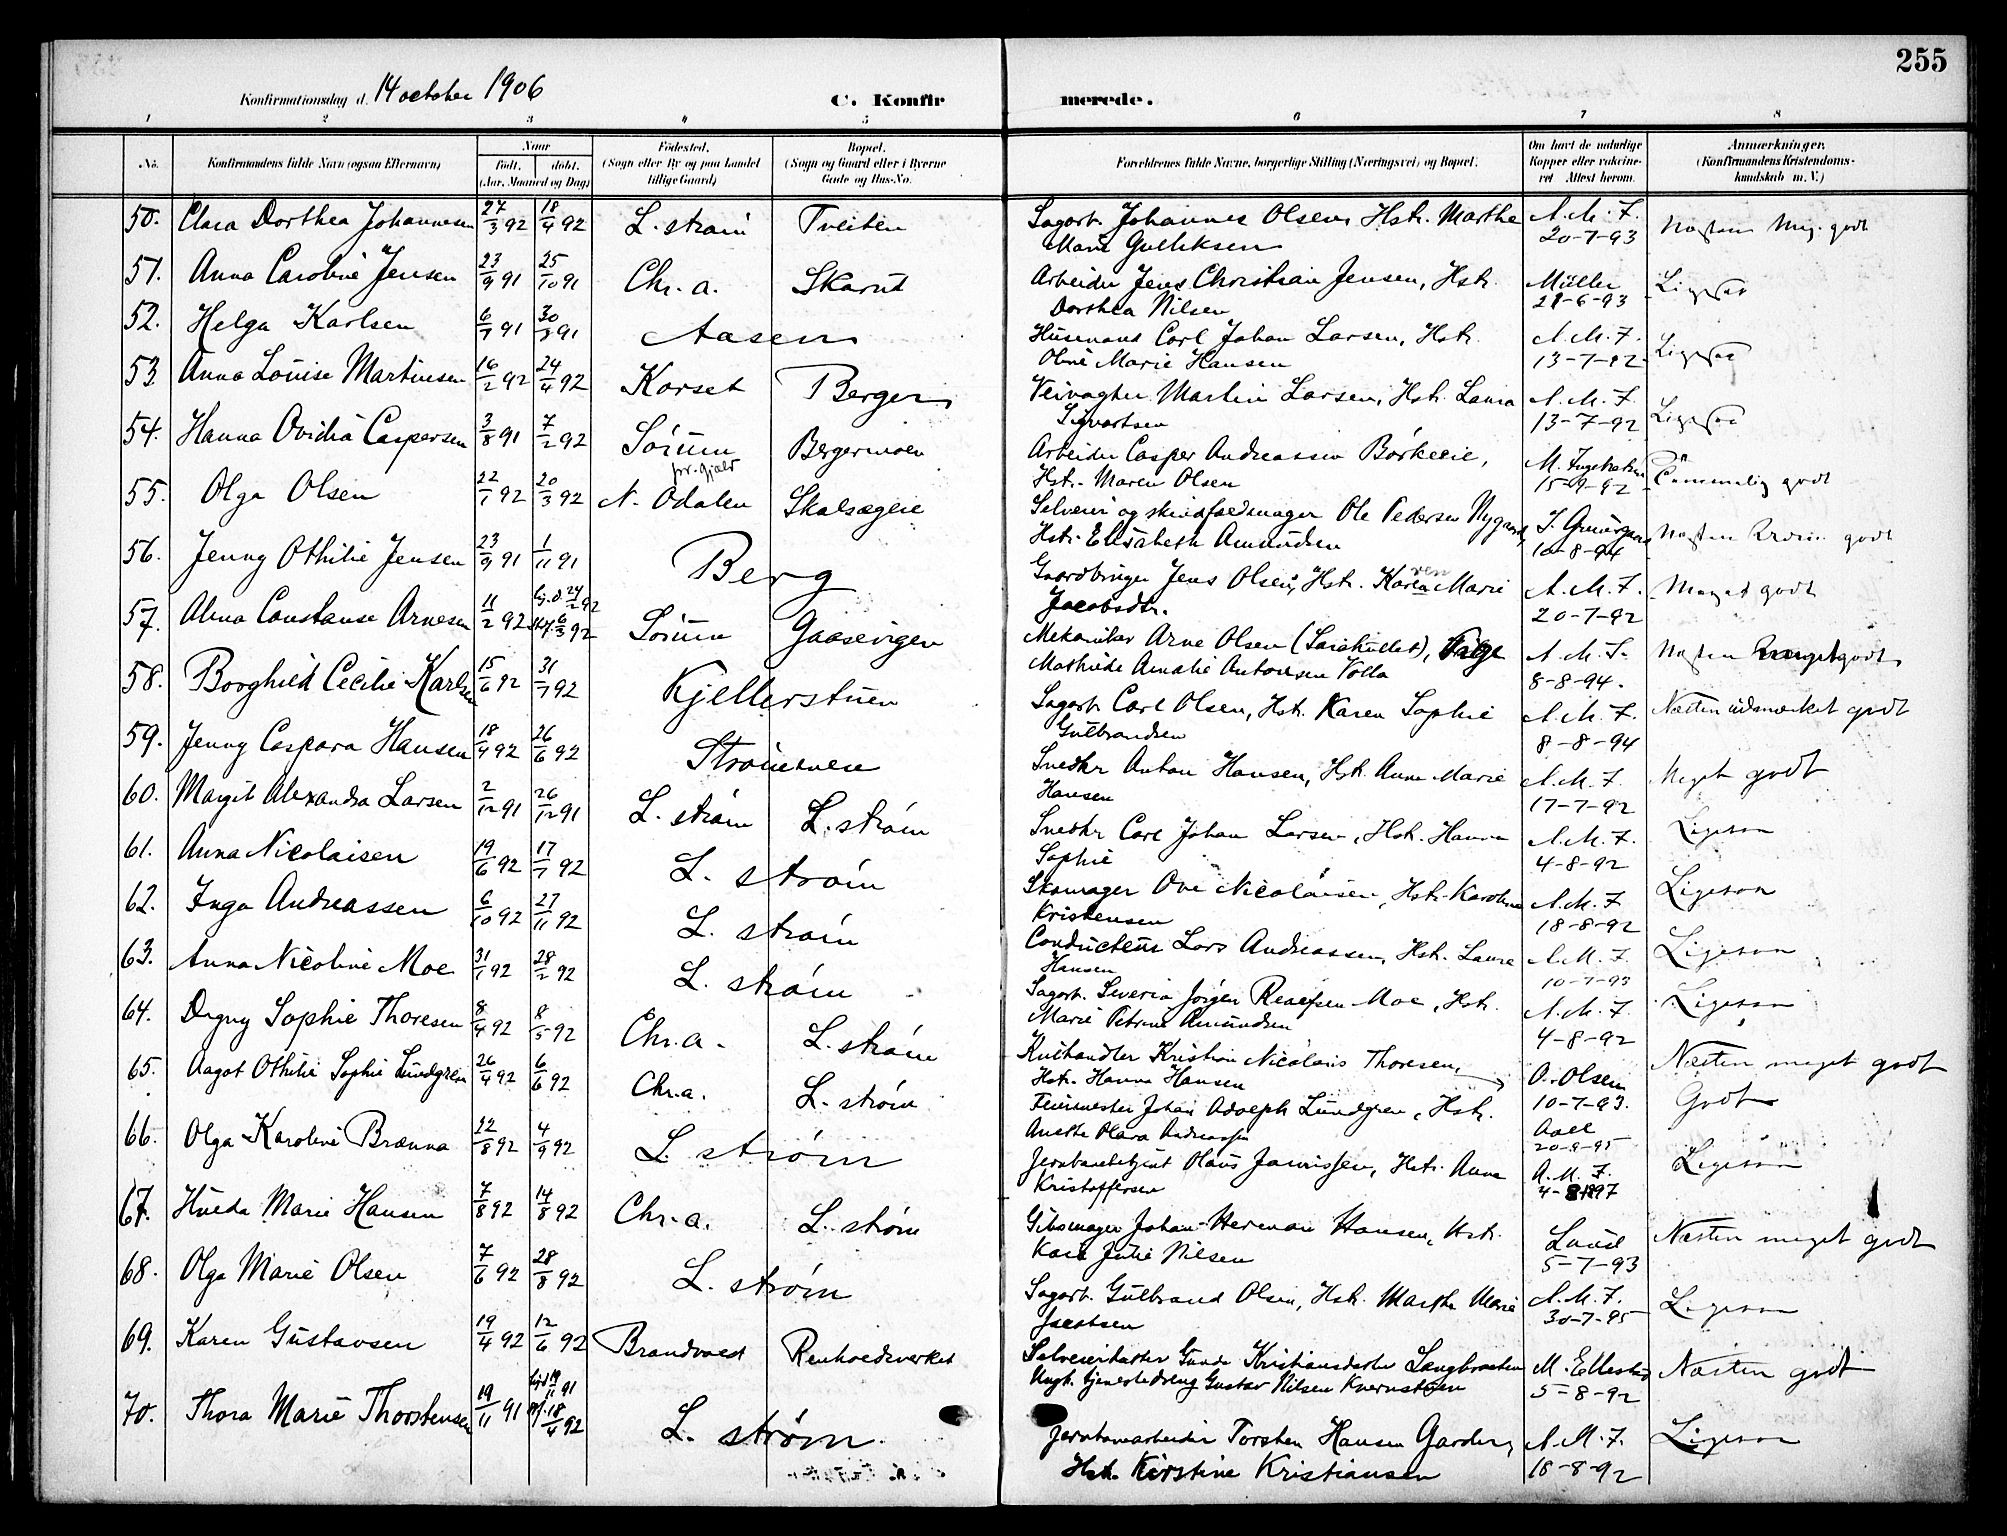 255
Konfirmationsdag d. 14 october 1906
C. Konfirmerede.
1 2 3 4 5 6 7 8
No. Konfirmandens fulde Navn (ogsaa Efternavn) Naar født, døbt. (Aar, Maaned og Dag) Fødested. (Sogn eller By og paa Landet tillige Gaard) Bopæl. (Sogn og Gaard eller i Byerne Gade og Hus-No. Forældrenes fulde Navne, borgerlige Stilling (Næringsvei) og Bopæl. Om havt de naturlige Kopper eller vakcineret Attest herom. Anmærkninger. (Konfirmandens Kristendomskundskab m. V.)
50. Clara Dorthea Johannesen 27/3 92 18/4 92 L. strøm Tveiten Sagarb. Johannes Olsen, Hstr. Marthe A. M. F.
Marie Gulliksen 20-7-93 Næsten meg. godt
51. Anna Caroline Jensen 23/9 91 25/10 91 Chr.a. Skarud Arbeider Jens Christian Jensen, Hstr. Müller
Dorthea Nilsen 21-6-93 Ligesaa
52. Helga Karlsen 6/7 91 30/8 91 Aasen Husmand Carl Johan Larsen, Hstr. A. M. F.
Oline Marie Hansen 13-7-92 Ligesaa
53. Anna Louise Martinsen 16/2 92 24/4 92 Korset Berger Veivogter Martin Larsen, Hstr. Laura A. M. F.
Sigvartsen 13-7-92 Ligesaa
54. Hanna Ovidia Caspersen 3/8 91 7/2 92 Sørum Bergermoen Arbeider Casper Andreassen
Hstr. Maren Olsen 15-9-92 godt
55. Olga Olsen 22/1 92 20/3 92 N. Odalen Selveier og skindfældmager Ole Pedersen Nygaard,
Hstr. Elisabeth Amundsen 10-8-94 Næsten godt
56. Jenny Othilie Jensen 23/9 91 1/11 91 Berg Gaardbruger Jens Olsen, Hstr. Karen Marie A. M. F.
Jacobsdtr. 20-7-92 Meget godt
57. Alma Constanse Arnesen 11/2 92 hj.d. 24/2 92 stf. 6/3 92 Sørum Gaasevigen Mekaniker Arne Olsen, Pige A. M. F.
Mathilde Amalie Antonsen Volla 8-8-94. Næsten meget godt
58. Borghild Cecilie Karlsen 15/6 92 31/7 92 Kjellerstuen Sagarb. Carl Olsen, Hstr. Karen Sophie A. M. F.
Gulbrandsen 8-8-94 Næsten udmærket godt
59. Jenny Caspara Hansen 18/4 92 26/6 92 Strømmen Snedker Anton Hansen, Hstr. Anne Marie A. M. F.
Hansen 17-7-92 Meget godt
60. Margit Alexandra Larsen 2/12 91 26/12 91 L. strøm L. strøm Snedker Carl Johan Larsen, Hstr. Hanna A. M. F.
Sophie 4-8-92 Ligesom
61. Anna Nicolaisen 19/6 92 17/7 92 L. strøm Skomager Ove Nicolaisen, Hstr. Karoline A. M. F
Kristensen 18-8-92 Ligesom
62. Inga Andreassen 6/10 92 27/11 92 L. strøm Conducteur Lars Andreassen, Hstr. Laura A. M. F.
Hansen 10-7-93 Ligesom
63. Anna Nicoline Moe 31/1 92 28/2 92 L. strøm Sagarb. Severin Jörgen Moe, Hstr. A. M. F.
Marie Petrine Amundsen 4-8-92 Ligesom
64. Dagny Sophie Thoresen 8/4 92 8/5 92 Chr.a. L. strøm Kulhandler Kristian Nicolais Thoresen, O. Olsen
Hstr. Hanna Hansen 10-7-93. Næsten meget godt
65. Aagot Othilie Sophie Lundgren 26/4 92 6/6 92 Chr.a. L. strøm Feiermester Johan Adolph Lundgren, Hstr. Aall
Anethe Olava Andreassen 20-9-95 Godt
66. Olga Karoline Brænna 22/8 92 4/9 92 L. strøm Jernbanebetjent Olaus Hstr. Anna A. M. F.
Kristoffersen Ligesom
67. Hulda Marie Hansen 7/8 92 14/8 92 Chr.a. L. strøm Gibsmager Johan Herman Hansen, Hstr. Lund
Kaia Julie Nilsen 5-7-93 Næsten meget godt
68. Olga Marie Olsen 7/6 92 28/8 92 L. strøm Sagarb. Gulbrand Olsen, Hstr. Marthe Marie A. M. F.
Jacobsen 30-7-95 Ligesom
69. Karen Gustavsen 19/4 92 12/6 92 Brandvold Selveierdatter Gunda Kristiansdatter Langbraaten M. Ellestad
Ungk. tjenestedreng Gustav Nilsen 5-8-92 Næsten godt
70. Thora Marie Thorstensen 19/11 91 hjd. 19/11 91 18/4 92 L. strøm. Jernbanearbeider Torsten Hansen Garder, A. M. F.
Hstr. Kirstine Kristiansen 18-8-92 Ligesom